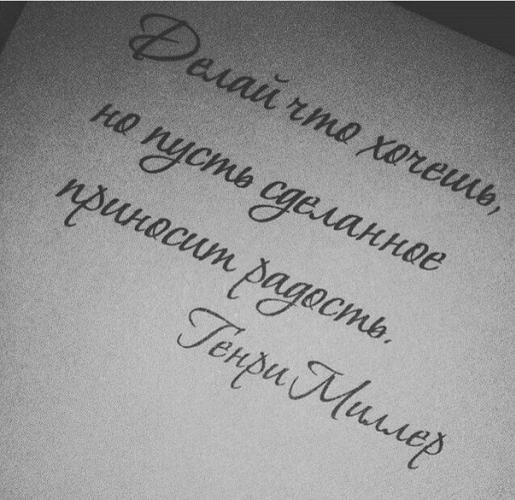 Делай что хочешь,
но пусть сделанное
приносит радость.
Генри Миллер